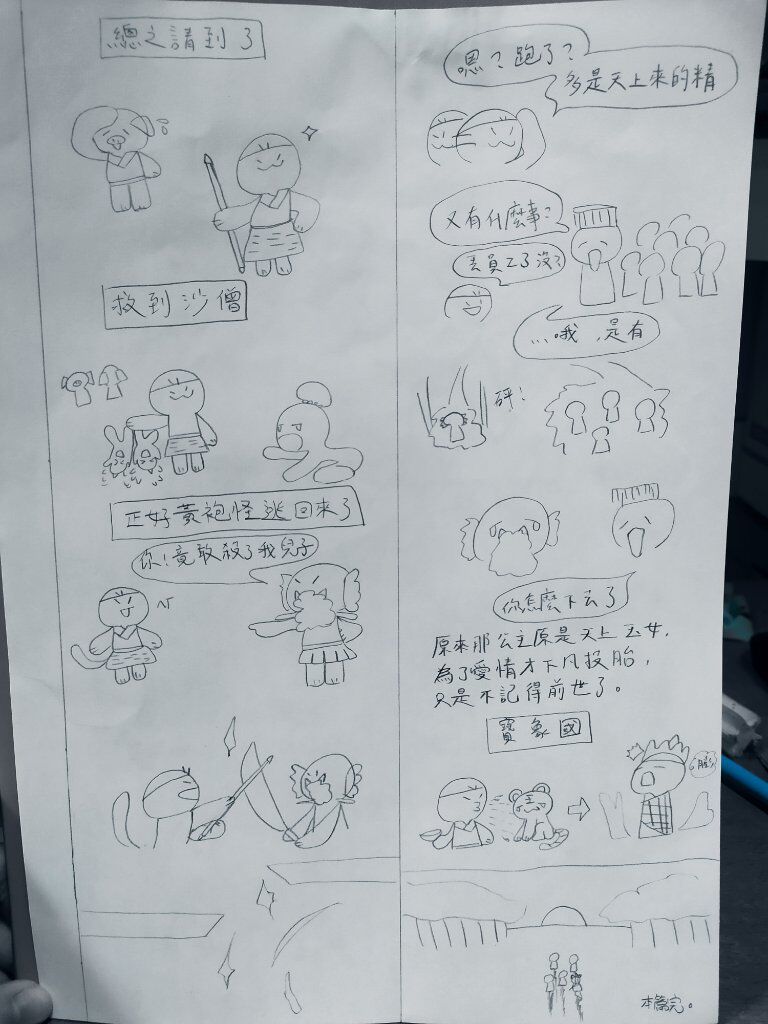 總之請到了
救到沙僧
正好黃袍怪逃回來了
你!竟敢殺了我兒子
嗯?跑了?
多是天上來的精
又有什麼事?
丟員工了沒?
...哦,是有
砰!
你怎麼下去了
原來那公主原是天上玉女,
為了愛情才下凡投胎,
只是不記得前世了。
寶象國
本篇完。